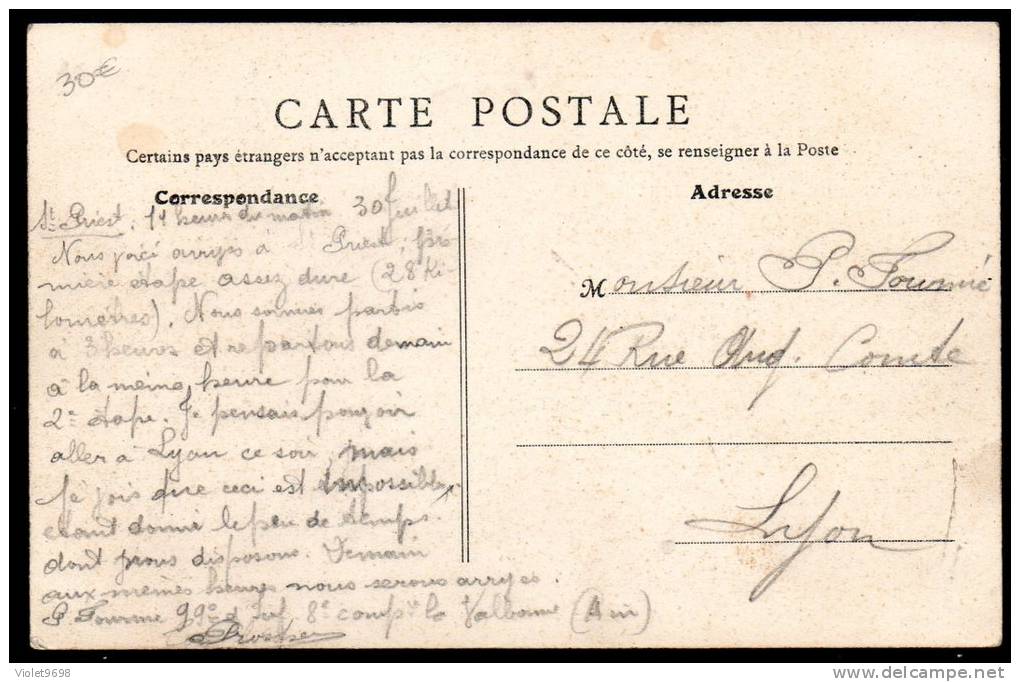 30€
CARTE POSTALE
Certains pays étrangers n'acceptant pas la correspondance de ce côté, se renseigner à la Poste
Correspondance
Adresse
St Priest, 11 heures du matin 30 Juillet
Nous voici arrivés à St Priest, pre-
mière étape assez dure (28 Ki-
lomètres). Nous sommes partis
à 3 heures et repartons demain
à la meme heure pour la
2e étape. Je pensais pouvoir
aller à Lyon ce soir, mais
je vois que ceci est impossible,
etant donné le peu de temps
dont nous disposons. Demain
aux mêmes heures nous serons arrivés.
P Fournié 99e d'Inf. 8e compie la Valbonne (Ain)
Prosper
Monsieur P. Fournié
24 Rue Aug. Comte
Lyon
Violet9698
delcampe.net